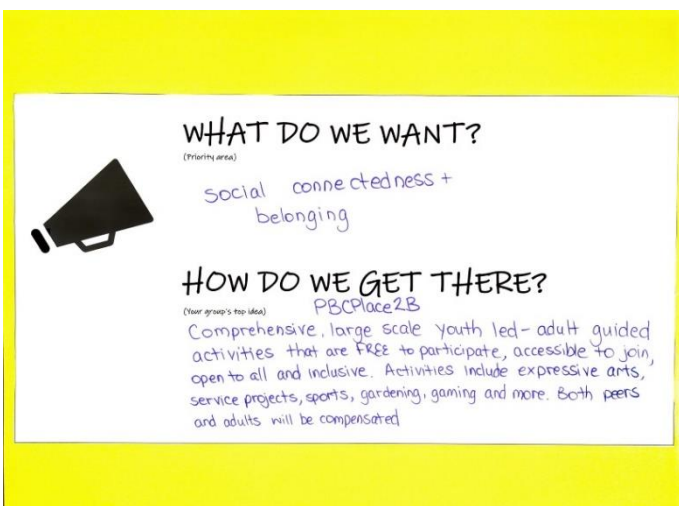 WHAT DO WE WANT?
(Priority area)
social connectedness +
belonging
HOW DO WE GET THERE?
(Your group's top idea)
PBCPlace2B
Comprehensive, large scale youth led-adult guided
activities that are FREE to participate, accessible to join,
open to all and inclusive. Activities include expressive arts,
service projects, sports, gardening, gaming and more. Both peers
and adults will be compensated